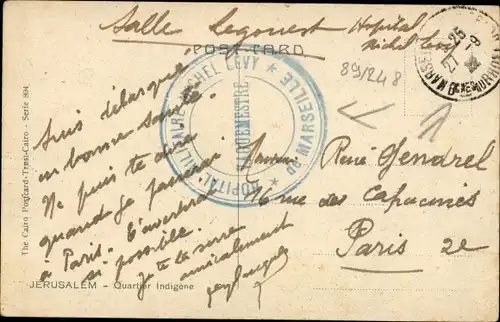 Salle Legouest Hopital
Michel Levy
POST CARD
89/248
HOPITAL MILITAIRE MICHEL LÉVY
VAGUEMESTRE
MARSEILLE
Suis débarqué
en bonne santé.
Ne puis te dire
quand je passerai
à Paris. T'avertirai
si possible.
Je te serre
amicalement
Monsieur René Gendrel
16 rue des Capucines
Paris 2e
The Cairo Postcard-Trust-Cairo - Serie 804
JERUSALEM - Quartier Indigène